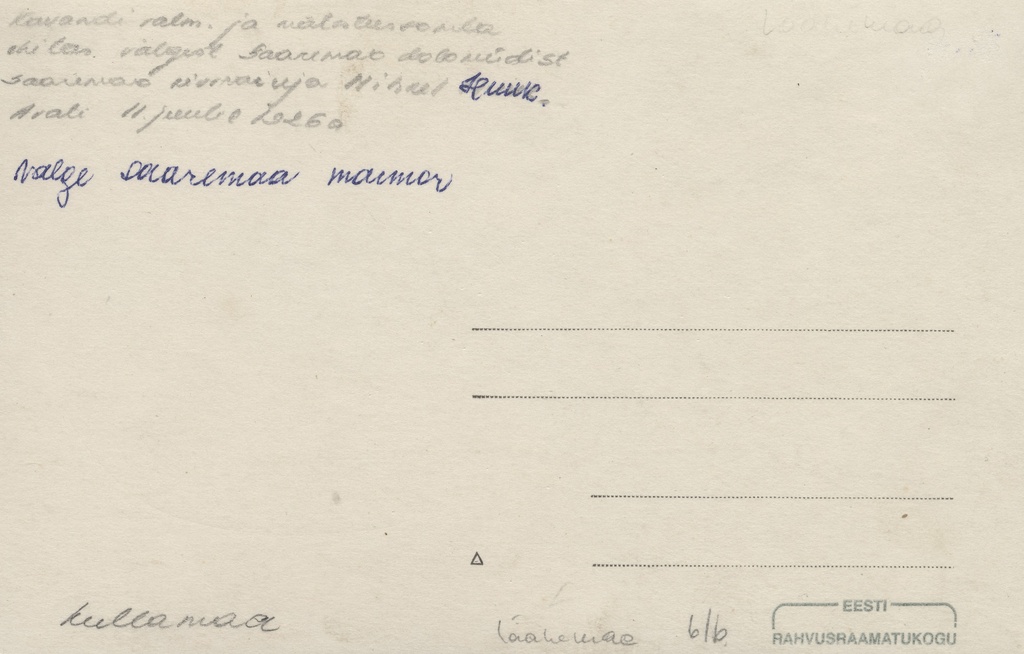 Läänemaa
kavandi valm. ja mälestussamba
ehitas valgest Saaremaa dolomiidist
Saaremaa kiviraiuja Mihkel Huuk.
Avati 11. juulil 1926a
valge saaremaa marmor
kullamaa
Läänemaa 6/b
EESTI
RAHVUSRAAMATUKOGU